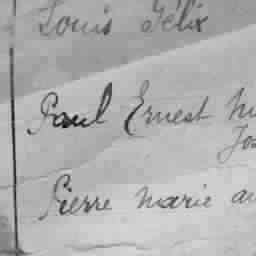 Louis Félix
Paul Ernest
Jos
Pierre marie au